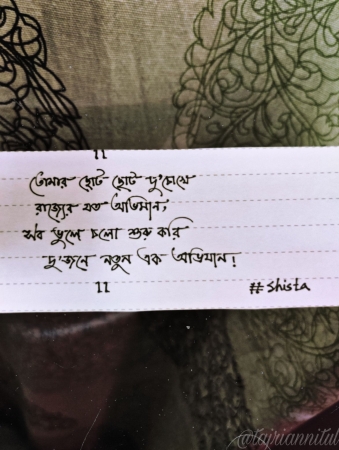 "
তোমার ছোট ছোট দু'চোখে
রাজ্যের যত অভিমান;
সব ভুলে চলো শুরু করি
দু'জনে নতুন এক অভিযান!
"
#shista
@tajriannitul